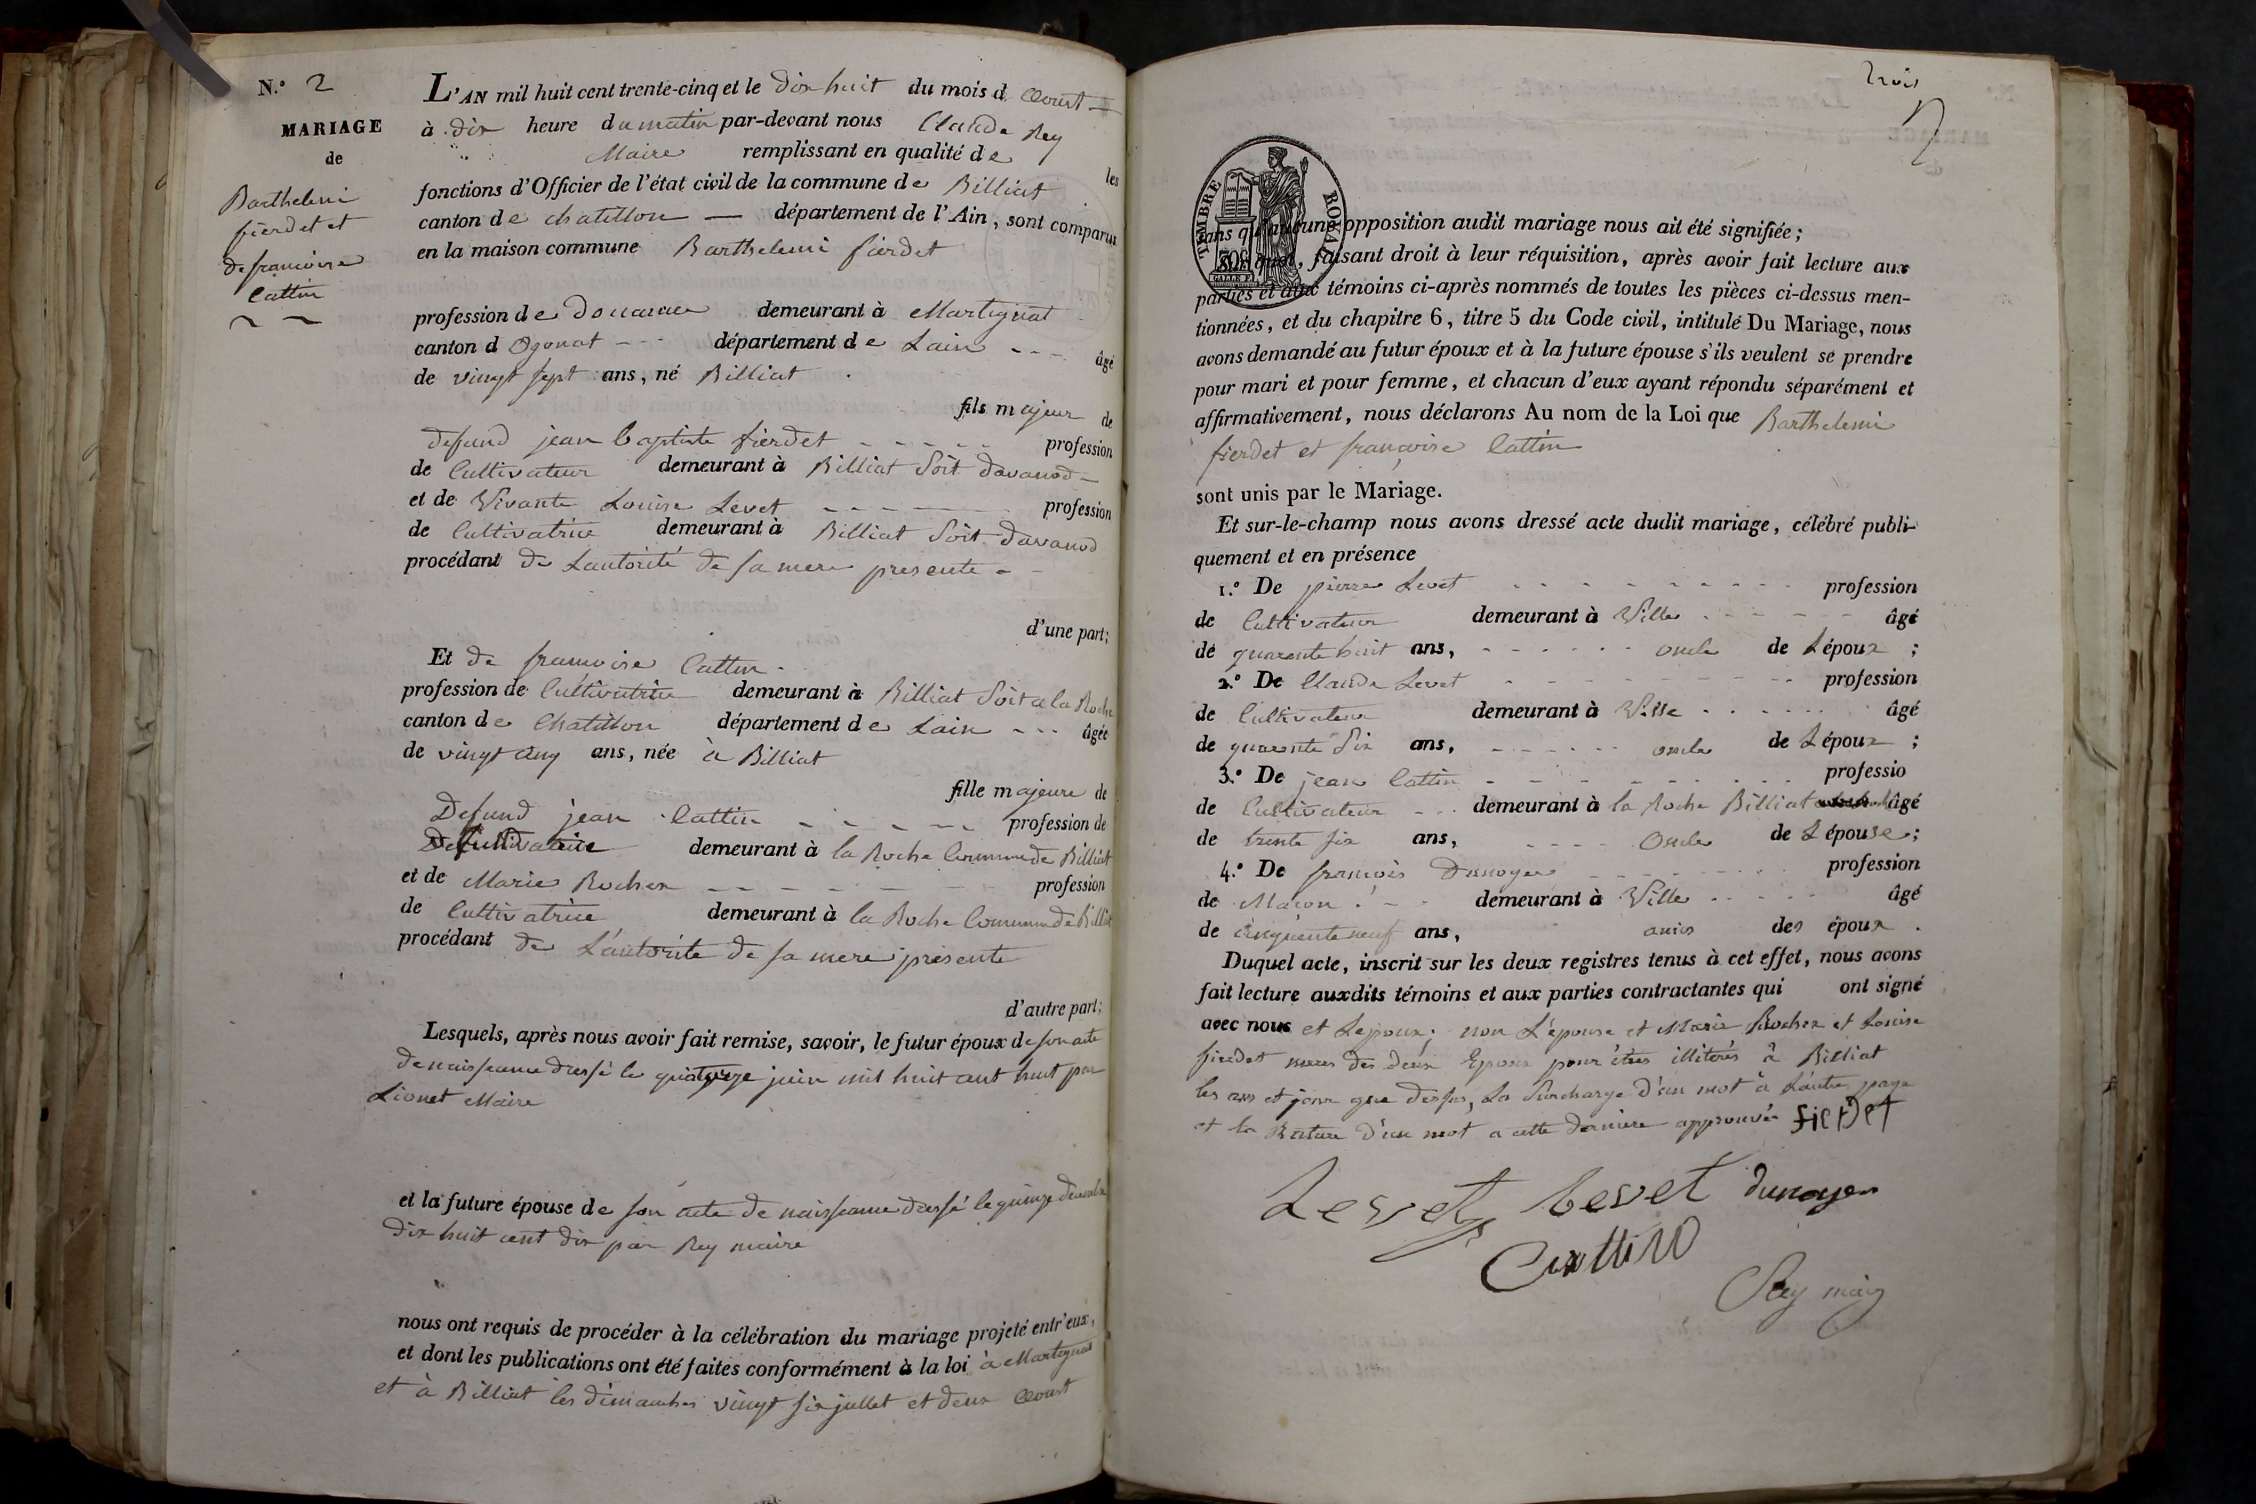 N.º 2
MARIAGE
de
Barthelemi
fierdet et
de francoise
Cattin
L'AN mil huit cent trente-cinq et le dix huit du mois d Aoust
à dix heure du matin par-devant nous Claude Rey
Maire remplissant en qualité de les
fonctions d'Officier de l'état civil de la commune de Billiat
canton de chatillon — département de l'Ain, sont comparus
en la maison commune Barthelemi fierdet
profession de Douanier demeurant à Martignat
canton d Ogonat département de Lain âgé
de vingt sept ans, né Billiat
fils majeur de
defund jean baptiste fierdet profession
de Cultivateur demeurant à Billiat Soit davanod
et de Vivante Louise Levet profession
de Cultivatrice demeurant à Billiat Soit davanod
procédant de Lautorité de sa mere presente
d'une part;
Et de francoise Cattin
profession de Cultivatrice demeurant à Billiat Soit a la Roche
canton de Chatillon département de Lain âgée
de vingt cinq ans, née à Billiat
fille majeure de
Defund jean Cattin profession de
demeurant à la Roche Commune de Billiat
et de Marie Rochex profession
de Cultivatrice demeurant à la Roche Commune de Billiat
procédant de L'autorité de sa mere présente
d'autre part;
Lesquels, après nous avoir fait remise, savoir, le futur époux de son acte
de naissance dressé le quatorze juin mil huit cent huit par
Lionet Maire
et la future épouse de son acte de naissance dressé le quinze décembre
dix huit cent dix par Rey maire
nous ont requis de procéder à la célébration du mariage projeté entr'eux,
et dont les publications ont été faites conformément à la loi à Martignat
et à Billiat les dimanches vingt six juillet et deux Aoust
trois
TIMBRE ROYAL
sans qu'aucune opposition audit mariage nous ait été signifiée;
Sur quoi, faisant droit à leur réquisition, après avoir fait lecture aux
parties et aux témoins ci-après nommés de toutes les pièces ci-dessus men-
tionnées, et du chapitre 6, titre 5 du Code civil, intitulé Du Mariage, nous
avons demandé au futur époux et à la future épouse s'ils veulent se prendre
pour mari et pour femme, et chacun d'eux ayant répondu séparément et
affirmativement, nous déclarons Au nom de la Loi que Barthelemi
fierdet et françoise Cattin
sont unis par le Mariage.
Et sur-le-champ nous avons dressé acte dudit mariage, célébré publi-
quement et en présence
1.º De pierre Levet profession
de Cultivateur demeurant à Ville âgé
de quarente huit ans, oncle de Lépoux ;
2.º De Claude Levet profession
de Cultivateur demeurant à Ville âgé
de quarente Six ans, oncle de Lépoux ;
3.º De jean Cattin professio
de Cultivateur demeurant à la Roche Billiat âgé
de trente six ans, Oncle de Lépouse ;
4.º De francois Dunoyer profession
de Macon demeurant à Ville âgé
de cinquente neuf ans, amis des époux .
Duquel acte, inscrit sur les deux registres tenus à cet effet, nous avons
fait lecture auxdits témoins et aux parties contractantes qui ont signé
avec nous et Lepoux; non L'épouse et Marie Rochex et Louise
fierdet meres des deux Epoux pour être illiterés à Billiat
les an et jour que dessus, La Surcharge d'un mot à Lautre page
et la Rature d'un mot a cette derniere approuvés fierdet
Levet Levet dunoyer
Cattin
Rey maire